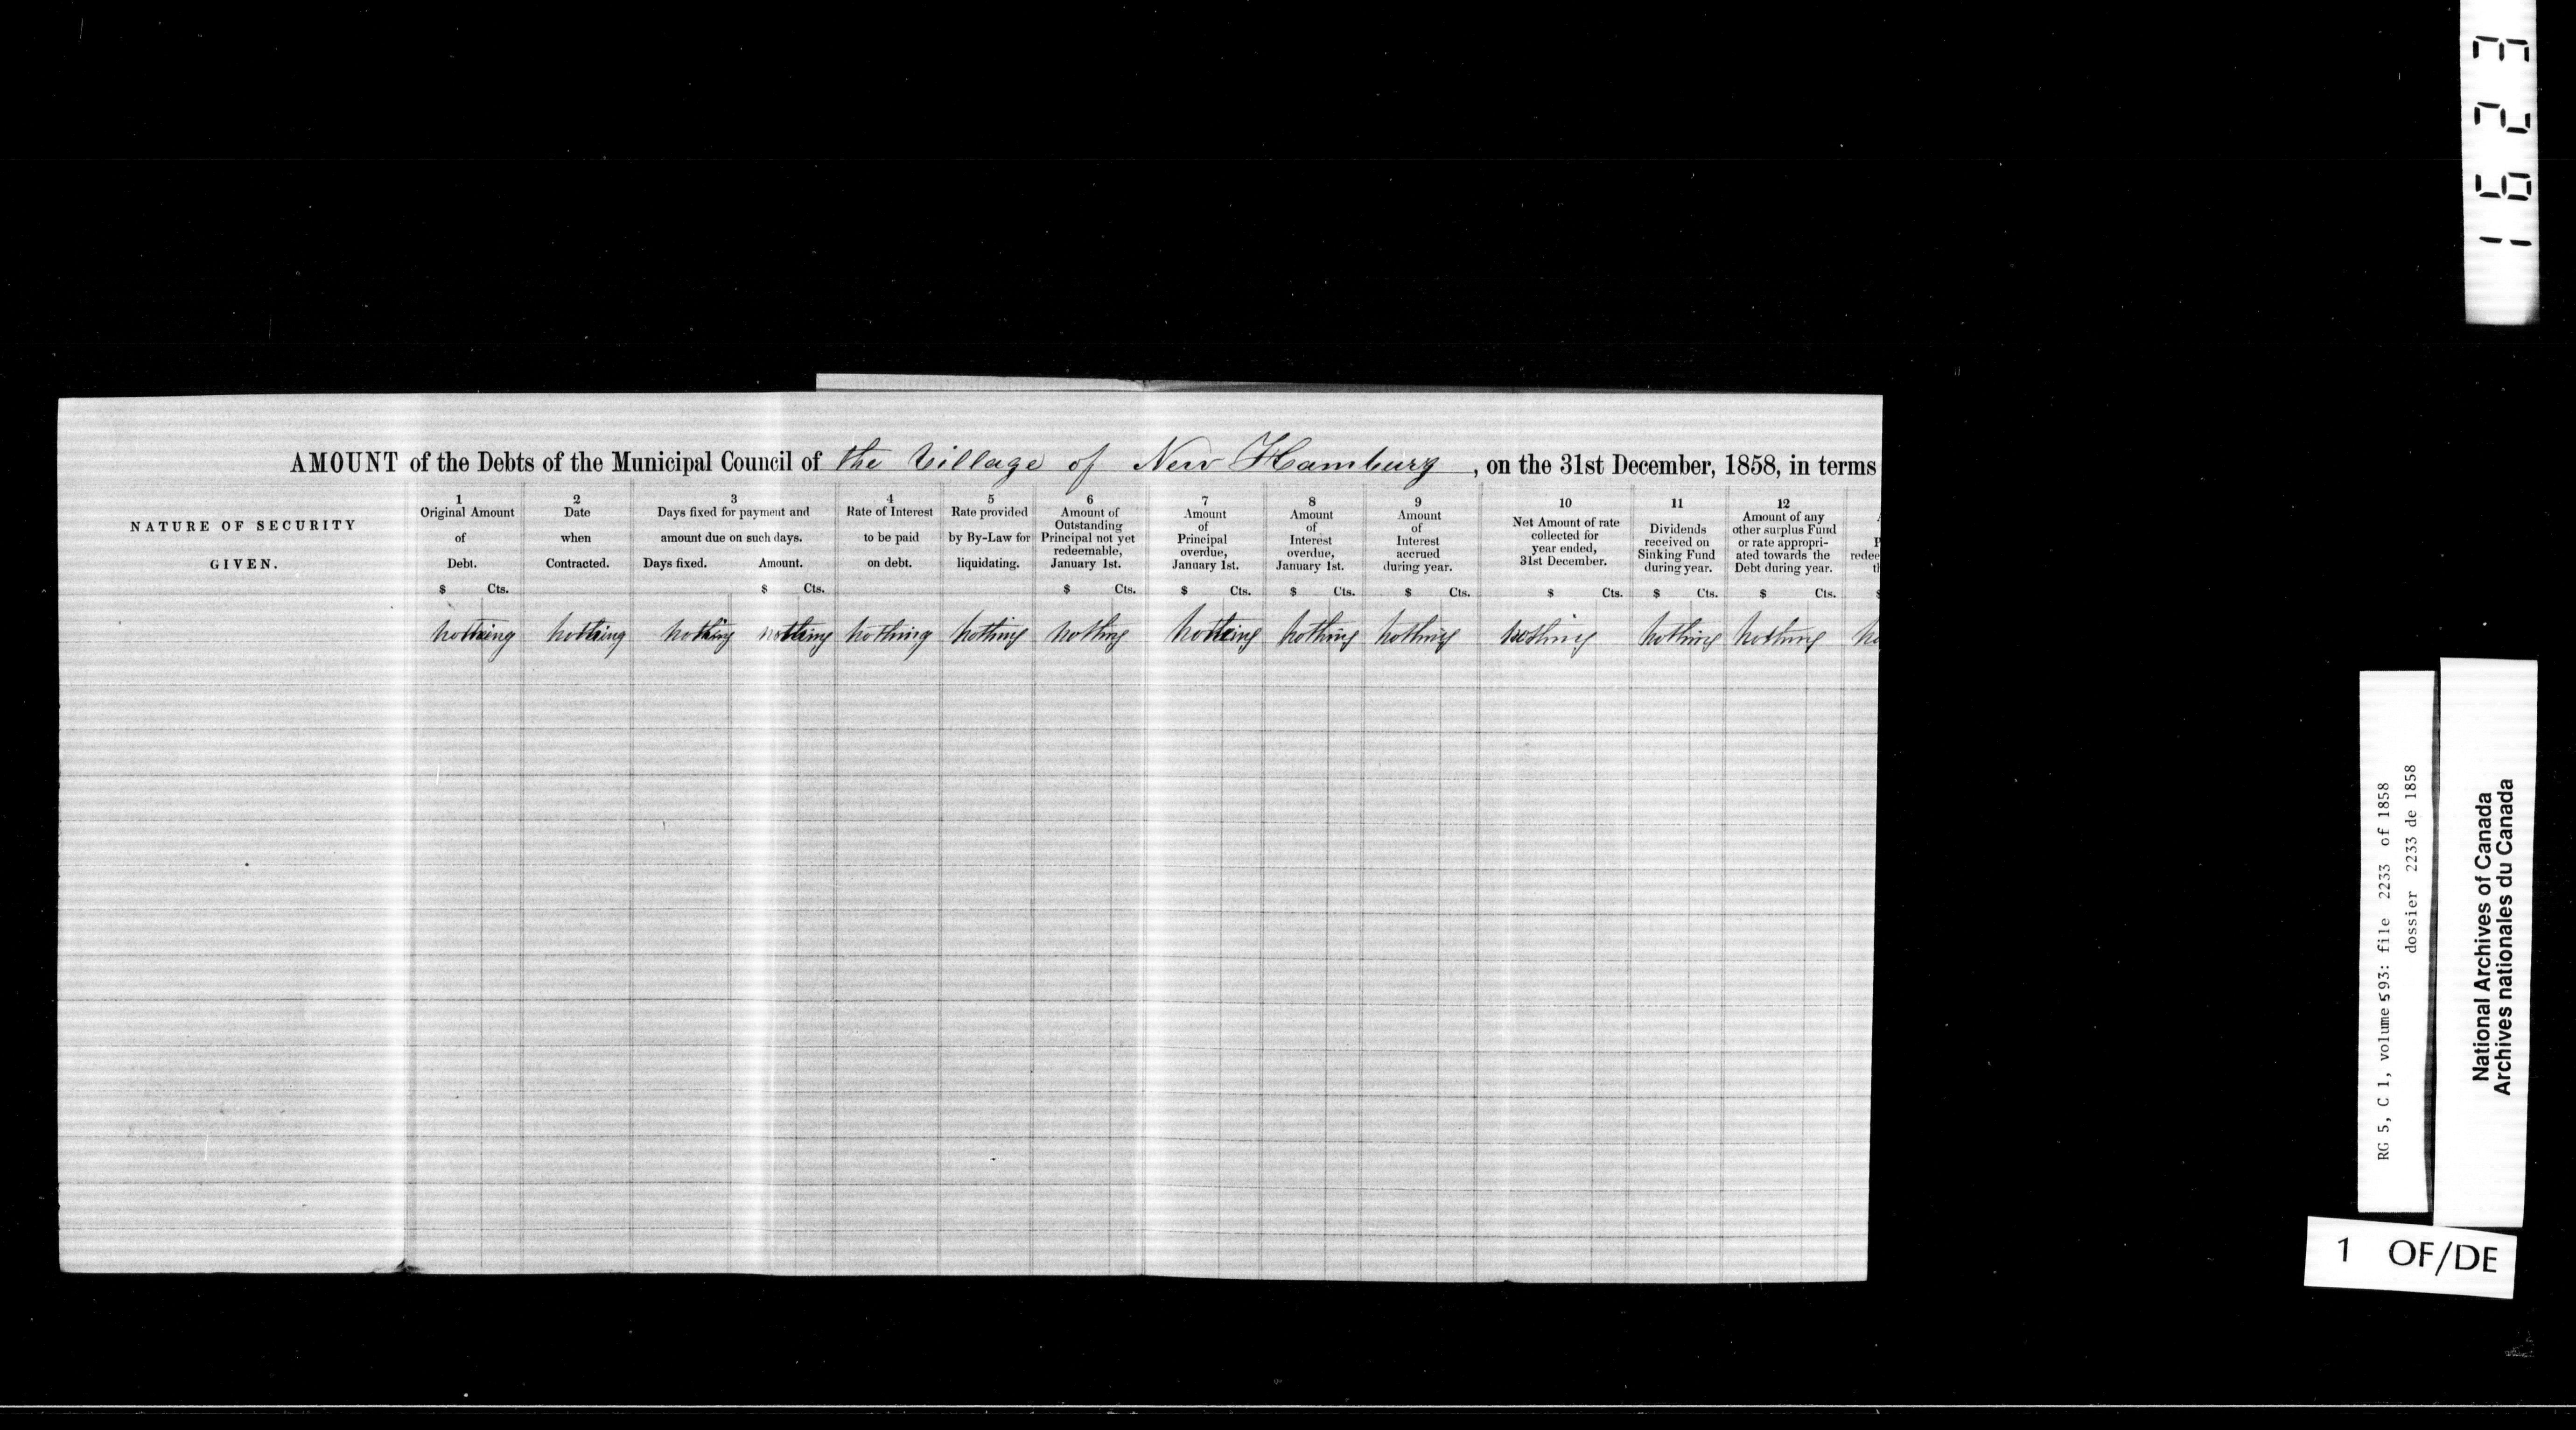 AMOUNT of the Debts of the Municipal Council of the Village of New Hamburg, on the 31st December, 1858, in terms
NATURE OF SECURITY
GIVEN.
1
Original Amount
of
Debt.
$ Cts.
2
Date
when
Contracted.
3
Days fixed for payment and
amount due on such days.
Days fixed. Amount.
$ Cts.
4
Rate of Interest
to be paid
on debt.
5
Rate provided
by By-Law for
liquidating.
6
Amount of
Outstanding
Principal not yet
redeemable,
January 1st.
$ Cts.
7
Amount
of
Principal
overdue,
January 1st.
$ Cts.
8
Amount
of
Interest
overdue,
January 1st.
$ Cts.
9
Amount
of
Interest
accrued
during year.
$ Cts.
10
Net Amount of rate
collected for
year ended,
31st December.
$ Cts.
11
Dividends
received on
Sinking Fund
during year.
$ Cts.
12
Amount of any
other surplus Fund
or rate appropri-
ated towards the
Debt during year.
$ Cts.
nothing nothing nothing nothing nothing nothing nothing nothing nothing nothing nothing nothing nothing
1623
RG 5, C 1, volume 593: file 2233 of 1858
dossier 2233 de 1858
National Archives of Canada
Archives nationales du Canada
1 OF/DE